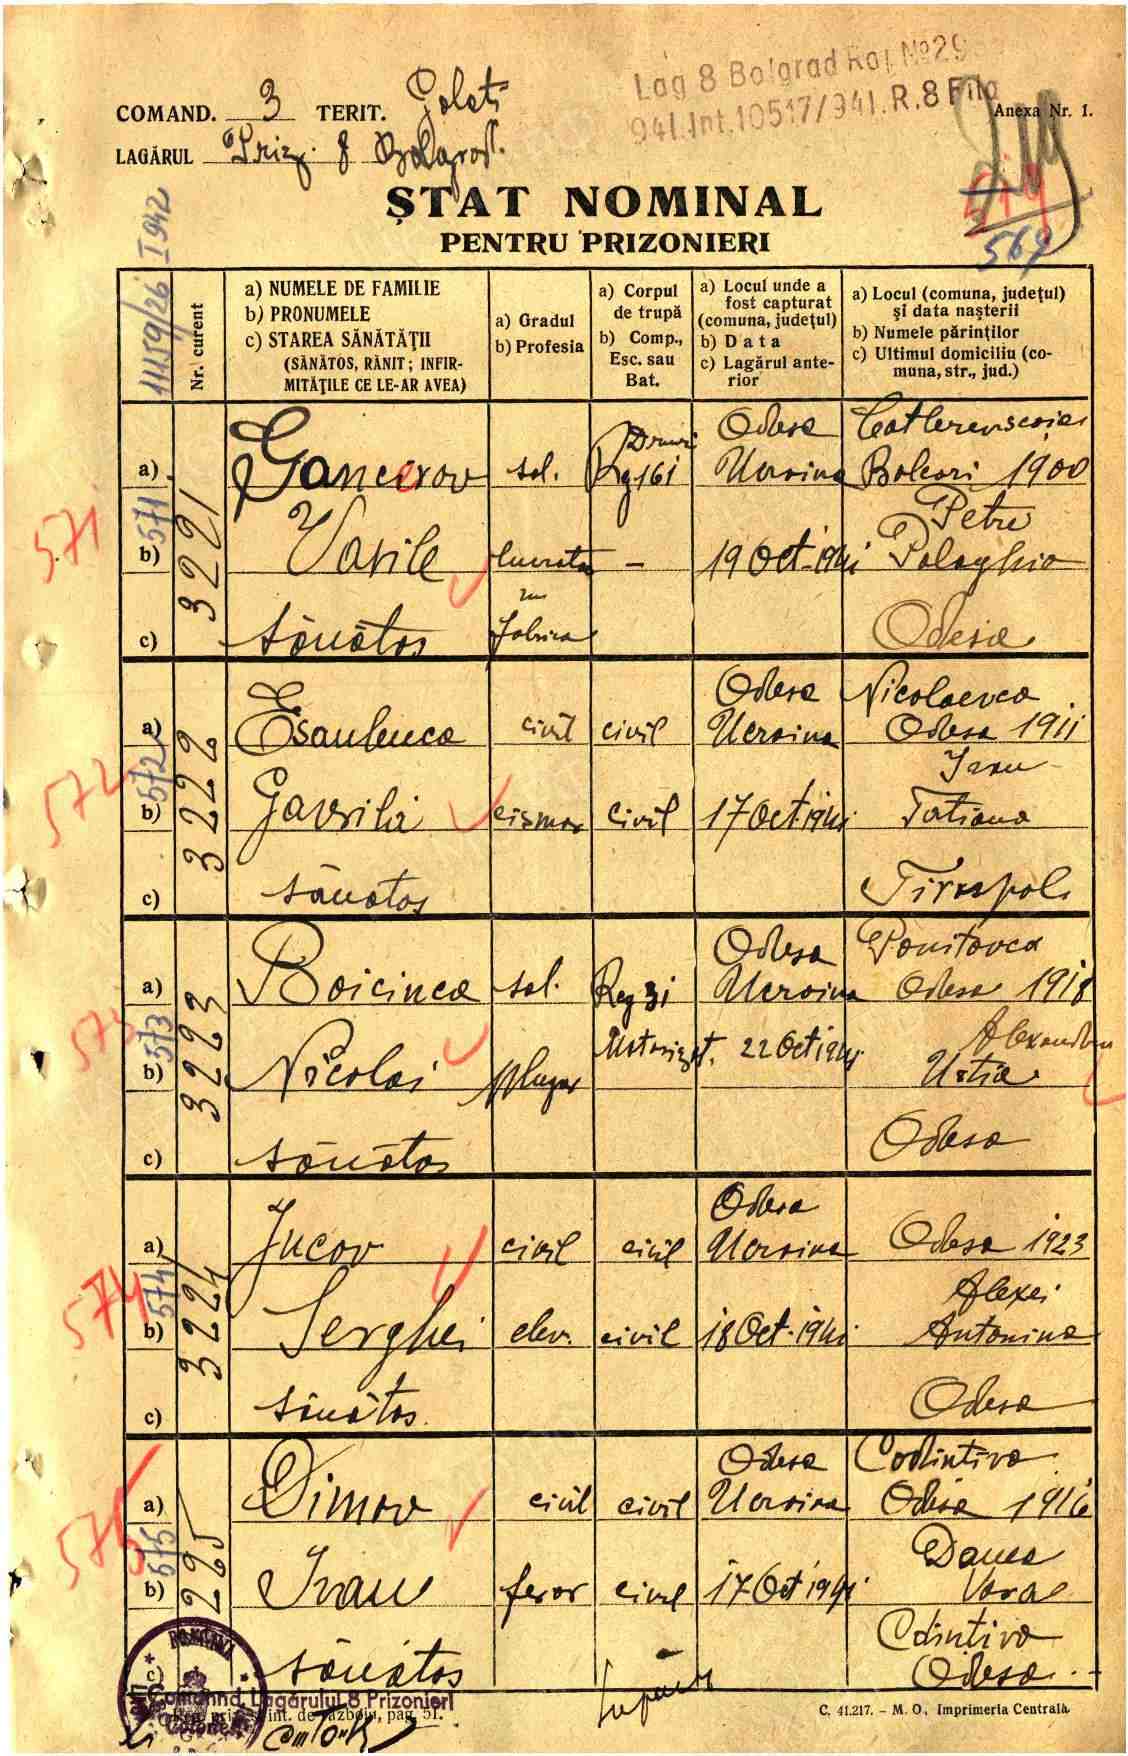 Lag 8 Bolgrad Raj No 29
941.Int.10517/941.R.8 Fila
COMAND. 3 TERIT. Galati
Anexa Nr. 1.
LAGĂRUL Priz. 8 Bolgrad.
519
567
ȘTAT NOMINAL
PENTRU PRIZONIERI
11159/26 I 942
Nr. curent
a) NUMELE DE FAMILIE
b) PRONUMELE
c) STAREA SĂNĂTĂȚII
(SĂNĂTOS, RĂNIT; INFIR-
MITĂȚILE CE LE-AR AVEA)
a) Gradul
b) Profesia
a) Corpul
de trupă
b) Comp.,
Esc. sau
Bat.
a) Locul unde a
fost capturat
(comuna, județul)
b) Data
c) Lagărul ante-
rior
a) Locul (comuna, județul)
și data nașterii
b) Numele părinților
c) Ultimul domiciliu (co-
muna, str., jud.)
571
571
3221
a) b) c)
Vasile
sănătos
sol.
lucrator
in
fabrica
Reg 161
–
Odesa
Ucraina
19 Oct-1941
1900
Petre
Pelaghia
Odesa
572
572
3222
a) b) c)
Esaulenca
Gavrilă
sănătos
civil
cismar
civil
civil
Odesa
Ucraina
17 Oct 1941
Nicolaevca
Odesa 1911
Ivan
Tatiana
Tiraspol
573
573
3223
a) b) c)
Boicinca
Nicolai
sănătos
sol.
plugar
Reg 31
Motorizat.
Odesa
Ucraina
22 Oct 1941
Odesa 1918
Alexandru
Ustia
Odesa
574
574
3224
a) b) c)
Jucov
Serghei
sănătos
civil
elev.
civil
civil
Odesa
Ucraina
18 Oct-1941
Odesa 1923
Alexei
Antonina
Odesa
575
575
3225
a) b) c)
Dimov
Ivan
sănătos
civil
feror
civil
civil
Odesa
Ucraina
17 Oct 1941
Codintiva
Odesa 1916
Danca
Vara
Odesa
ROMANIA
Comand. Lagărului 8 Prizonieri
Colonel
int. de războiu, pag. 51.
C. 41.217. – M. O., Imprimeria Centrală.